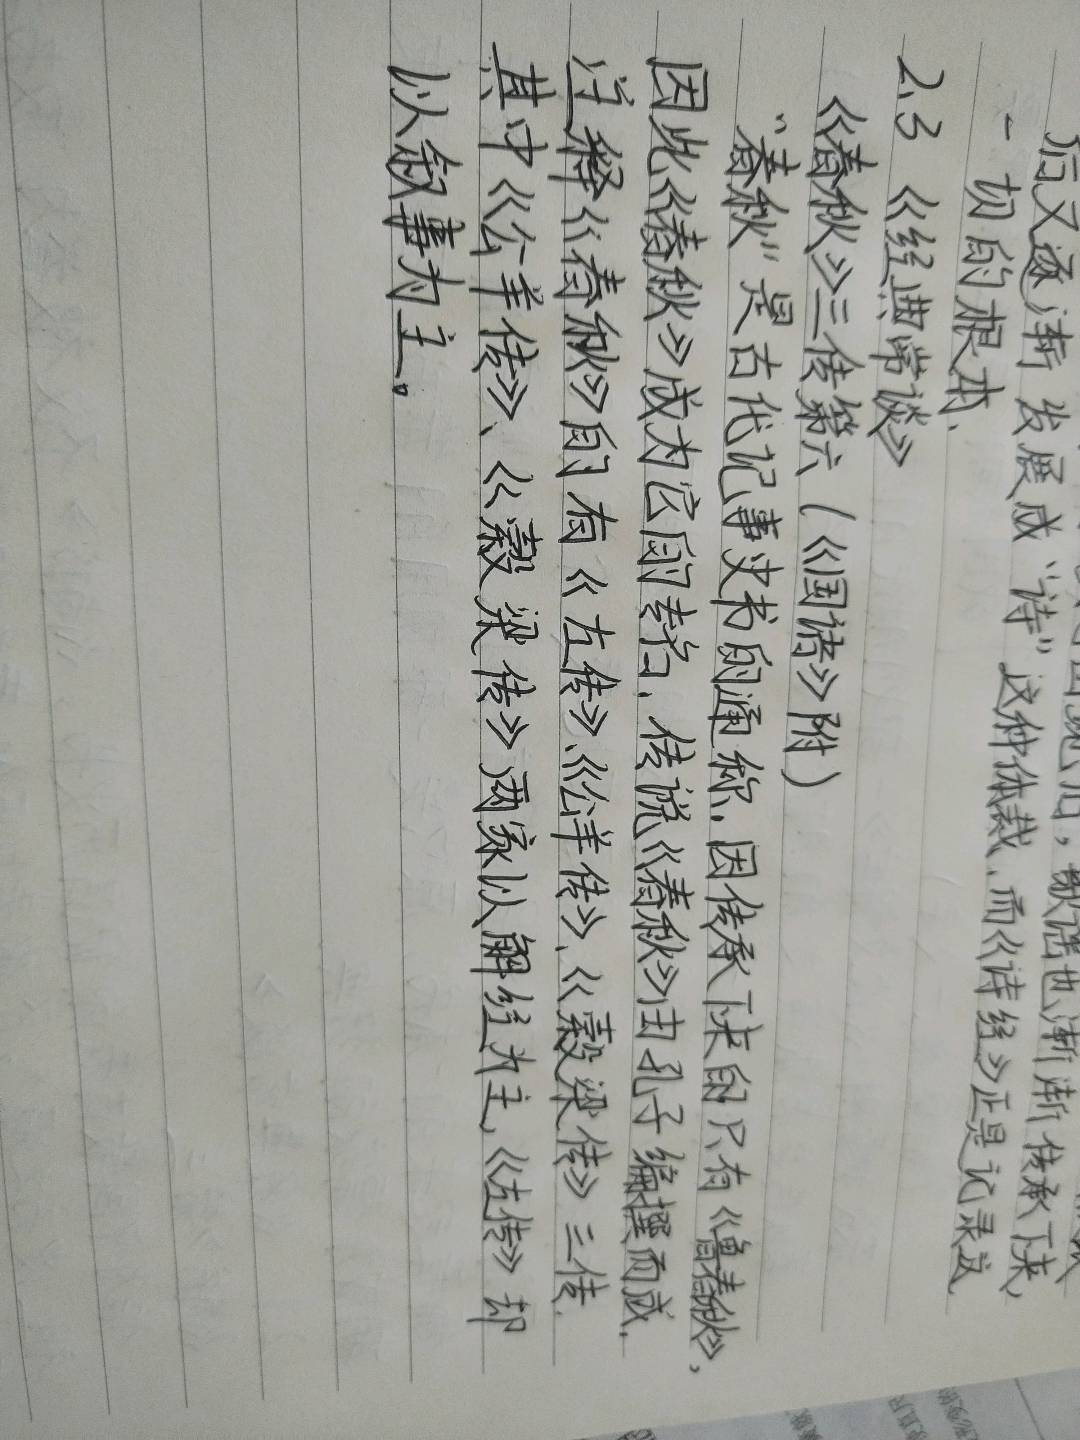 后又逐渐发展成“诗”这种体裁,而《诗经》正是记录这
一切的根本.
2.3 《经典常谈》
《春秋》三传第六(《国语》附)
“春秋”是古代记事史书的通称.因传承下来的只有《鲁春秋》,
因此《春秋》成为它的专名.传说《春秋》由孔子编撰而成.
注释《春秋》的有《左传》、《公羊传》、《穀梁传》三传.
其中《公羊传》、《穀梁传》两家以解经为主,《左传》却
以叙事为主。